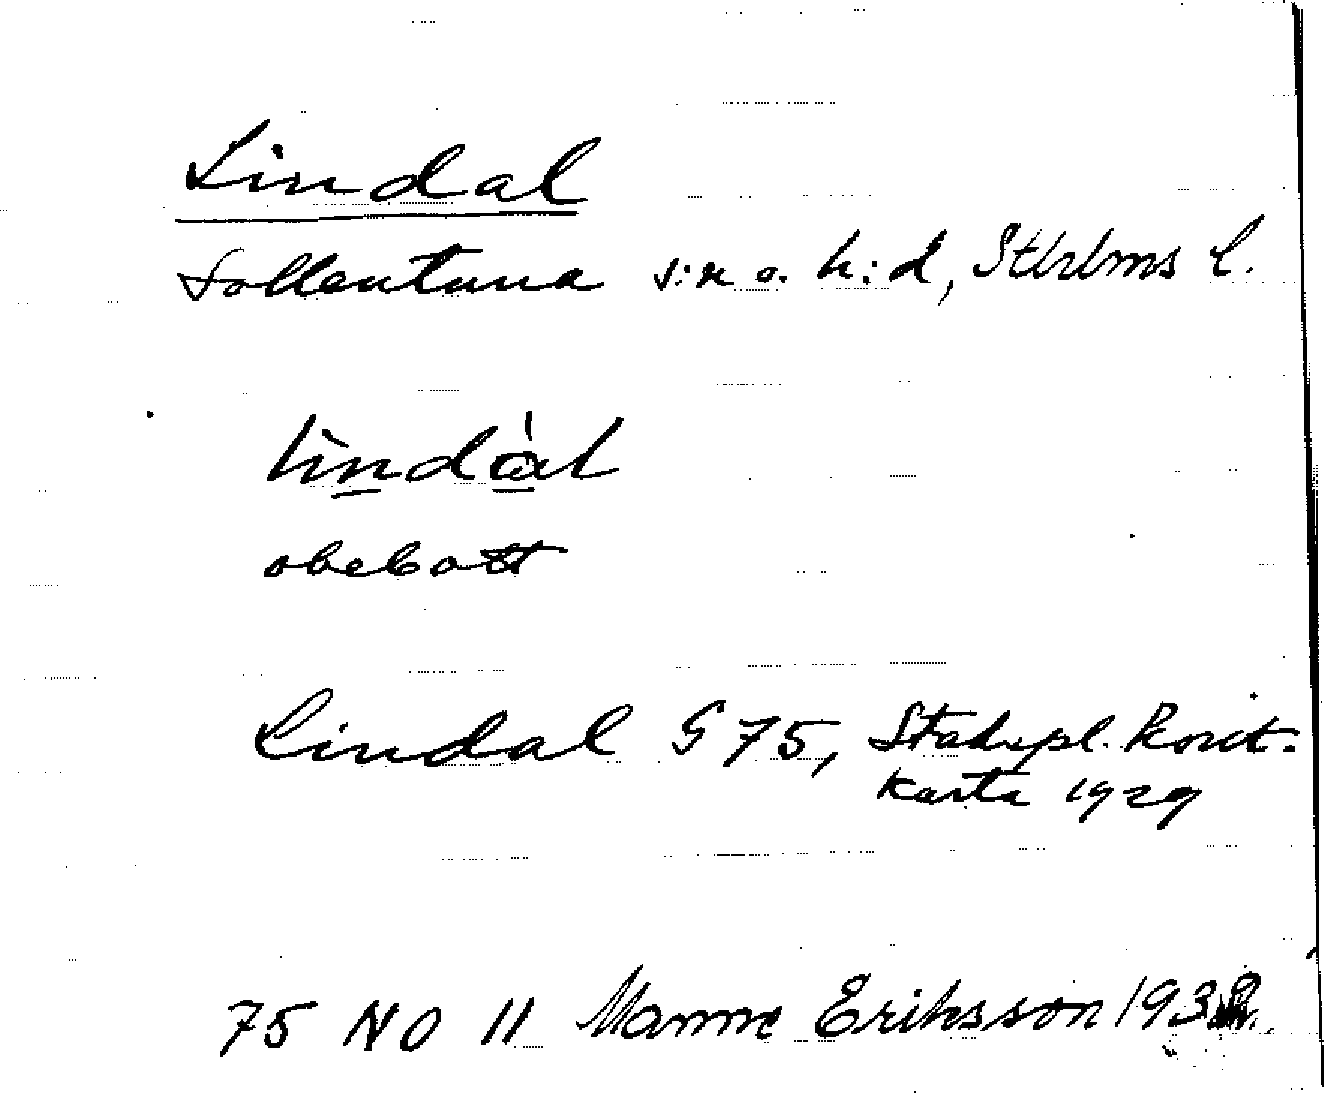 Lindal
Sollentuna s:n o. h:d, Sthlms l.
lìndàl
obebott
Lindal G 75, Stadspl.
karta 1929
75 NO 11 Manne Eriksson